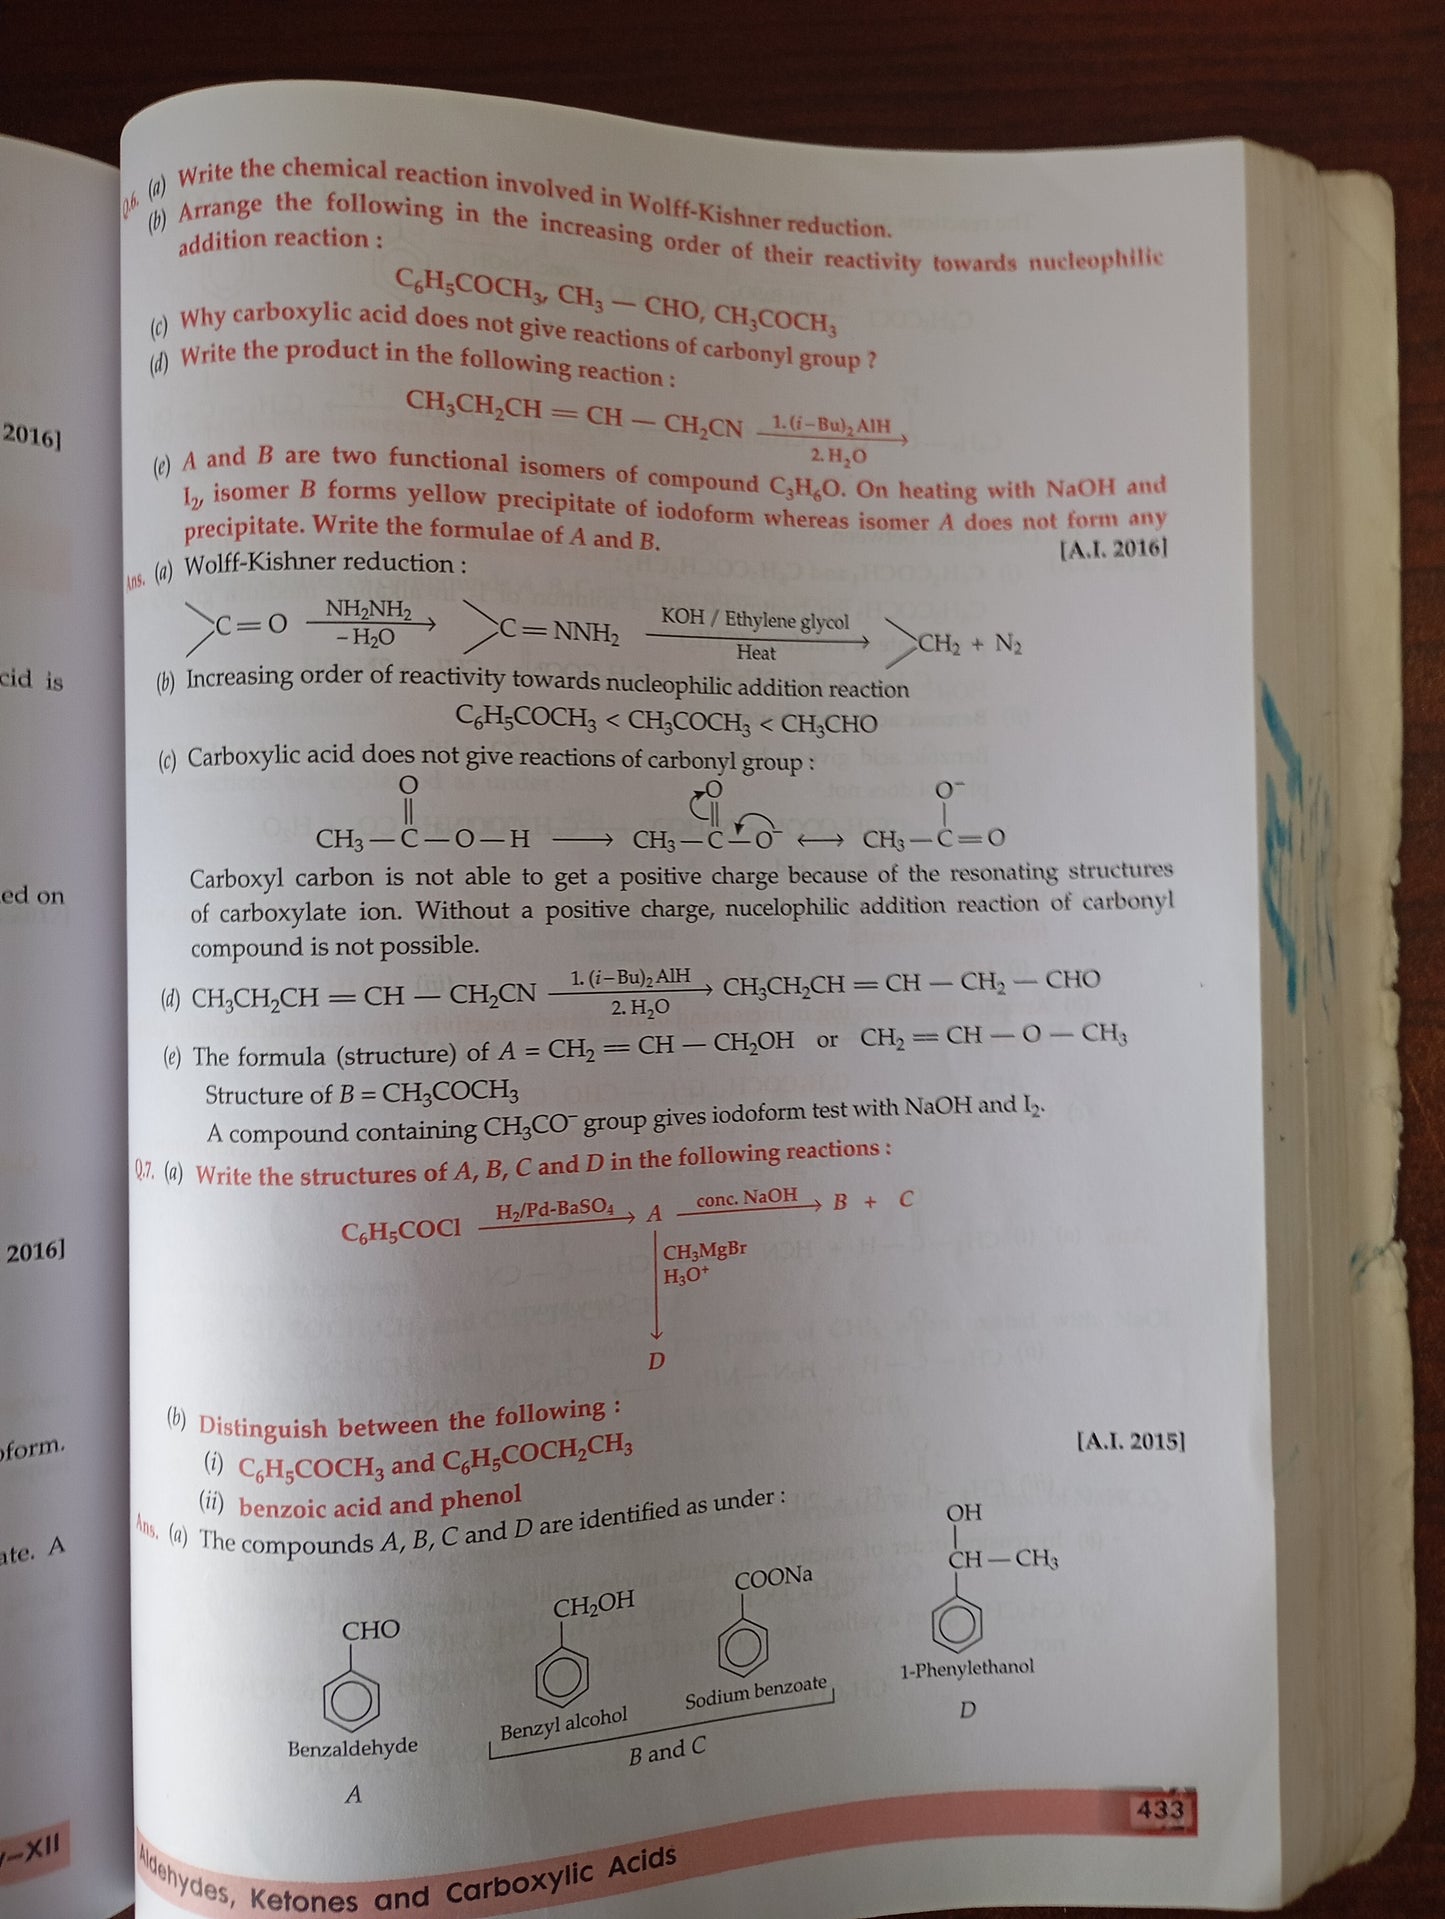 2016]
cid is
ed on
2016]
oform.
ate. A
–XII
Q.6. (a) Write the chemical reaction involved in Wolff-Kishner reduction.
(b) Arrange the following in the increasing order of their reactivity towards nucleophilic
addition reaction :
C₆H₅COCH₃, CH₃ — CHO, CH₃COCH₃
(c) Why carboxylic acid does not give reactions of carbonyl group ?
(d) Write the product in the following reaction :
CH₃CH₂CH = CH — CH₂CN 1. (i–Bu)₂ AlH
2. H₂O
(e) A and B are two functional isomers of compound C₃H₆O. On heating with NaOH and
I₂, isomer B forms yellow precipitate of iodoform whereas isomer A does not form any
precipitate. Write the formulae of A and B. [A.I. 2016]
Ans. (a) Wolff-Kishner reduction :
C = O NH₂NH₂ → C = NNH₂ KOH / Ethylene glycol → CH₂ + N₂
– H₂O Heat
(b) Increasing order of reactivity towards nucleophilic addition reaction
C₆H₅COCH₃ < CH₃COCH₃ < CH₃CHO
(c) Carboxylic acid does not give reactions of carbonyl group :
O O O⁻
CH₃ — C — O — H → CH₃ — C — O⁻ ↔ CH₃ — C = O
Carboxyl carbon is not able to get a positive charge because of the resonating structures
of carboxylate ion. Without a positive charge, nucelophilic addition reaction of carbonyl
compound is not possible.
(d) CH₃CH₂CH = CH — CH₂CN 1. (i–Bu)₂ AlH → CH₃CH₂CH = CH — CH₂ — CHO
2. H₂O
(e) The formula (structure) of A = CH₂ = CH — CH₂OH or CH₂ = CH — O — CH₃
Structure of B = CH₃COCH₃
A compound containing CH₃CO⁻ group gives iodoform test with NaOH and I₂.
Q.7. (a) Write the structures of A, B, C and D in the following reactions :
C₆H₅COCl H₂/Pd-BaSO₄ → A conc. NaOH → B + C
CH₃MgBr
H₃O⁺
D
(b) Distinguish between the following :
(i) C₆H₅COCH₃ and C₆H₅COCH₂CH₃
(ii) benzoic acid and phenol [A.I. 2015]
Ans. (a) The compounds A, B, C and D are identified as under :
CHO CH₂OH COONa OH
CH — CH₃
Benzaldehyde Benzyl alcohol Sodium benzoate 1-Phenylethanol
A B and C D
433
Aldehydes, Ketones and Carboxylic Acids